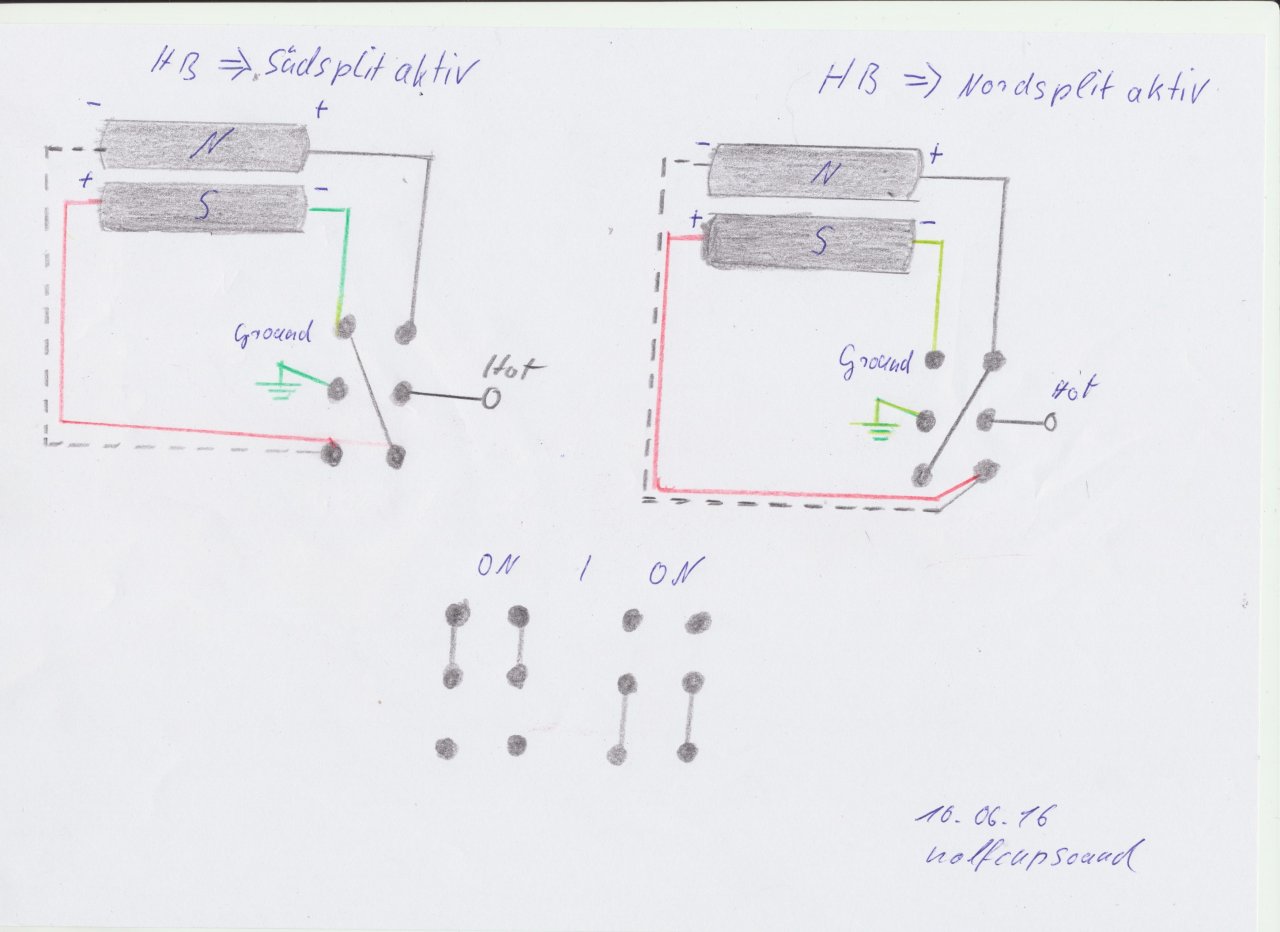 HB ⇒ Südsplit aktiv
HB ⇒ Nordsplit aktiv
- +
N
+ -
S
Ground
Hot
- +
N
+ -
S
Ground
Hot
ON / ON
16.06.16